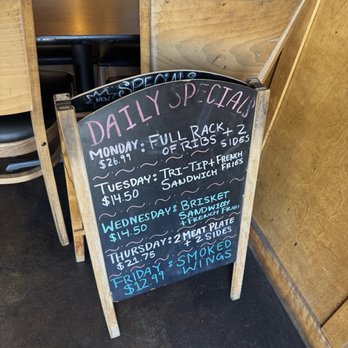 NEW SPECIALS
DAILY SPECIALS
MONDAY: FULL RACK
$26.99 OF RIBS + 2
SIDES
TUESDAY: TRI-TIP + FRENCH
$14.50 SANDWICH FRIES
WEDNESDAY: BRISKET
$14.50 SANDWICH
+ FRENCH FRIES
THURSDAY: 2 MEAT PLATE
$21.75 + 2 SIDES
FRIDAY: SMOKED
$12.99 WINGS